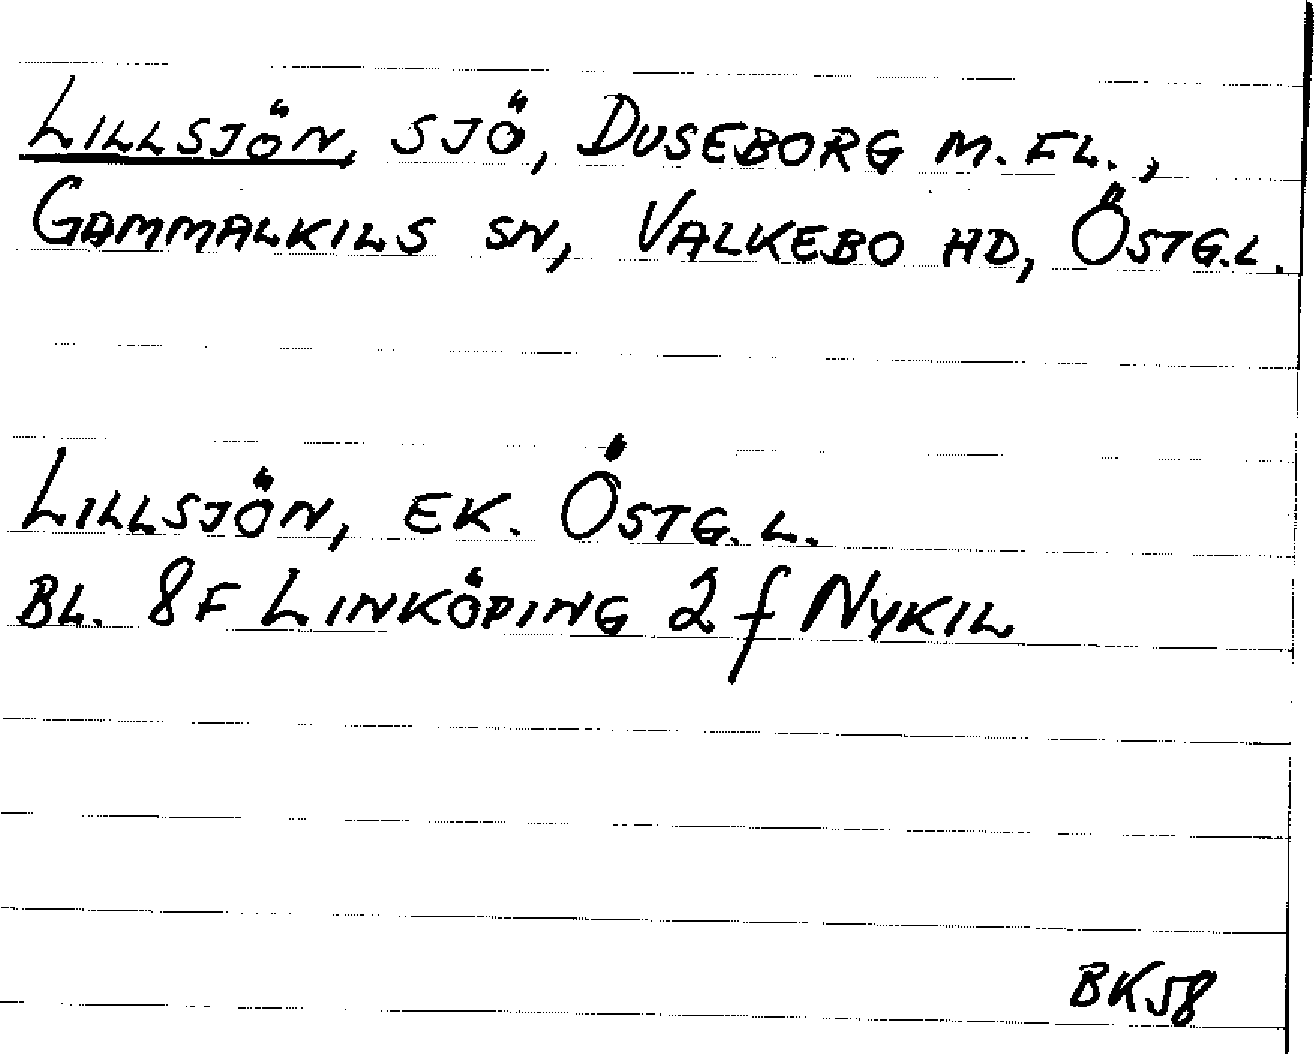 LILLSJÖN, SJÖ, DUSEBORG M.FL.,
GAMMALKILS SN, VALKEBO HD, ÖSTG.L.
LILLSJÖN, EK. ÖSTG.L.
BL. 8F LINKÖPING 2f NYKIL
BK58